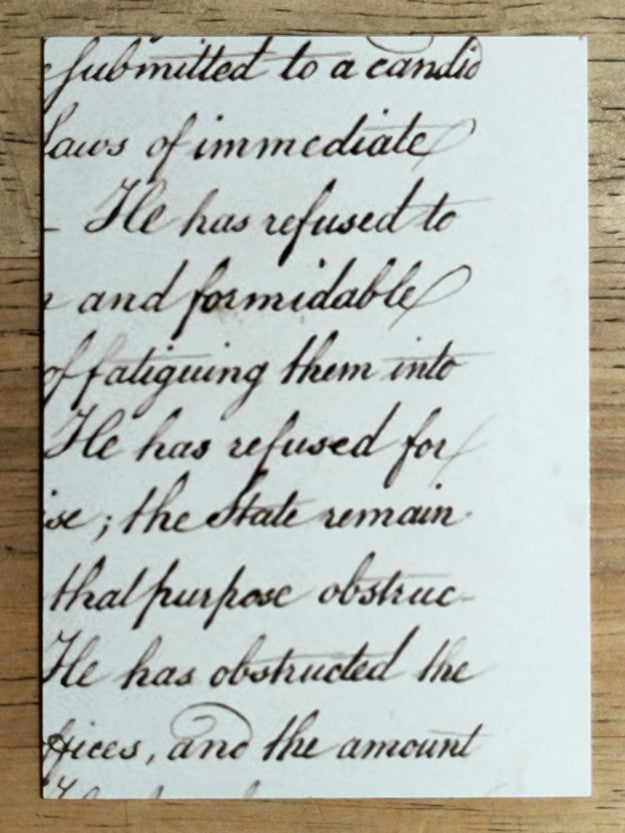 submitted to a candid
laws of immediate
He has refused to
and formidable
of fatiguing them into
He has refused for
ise; the State remain
that purpose obstruc-
He has obstructed the
ffices, and the amount